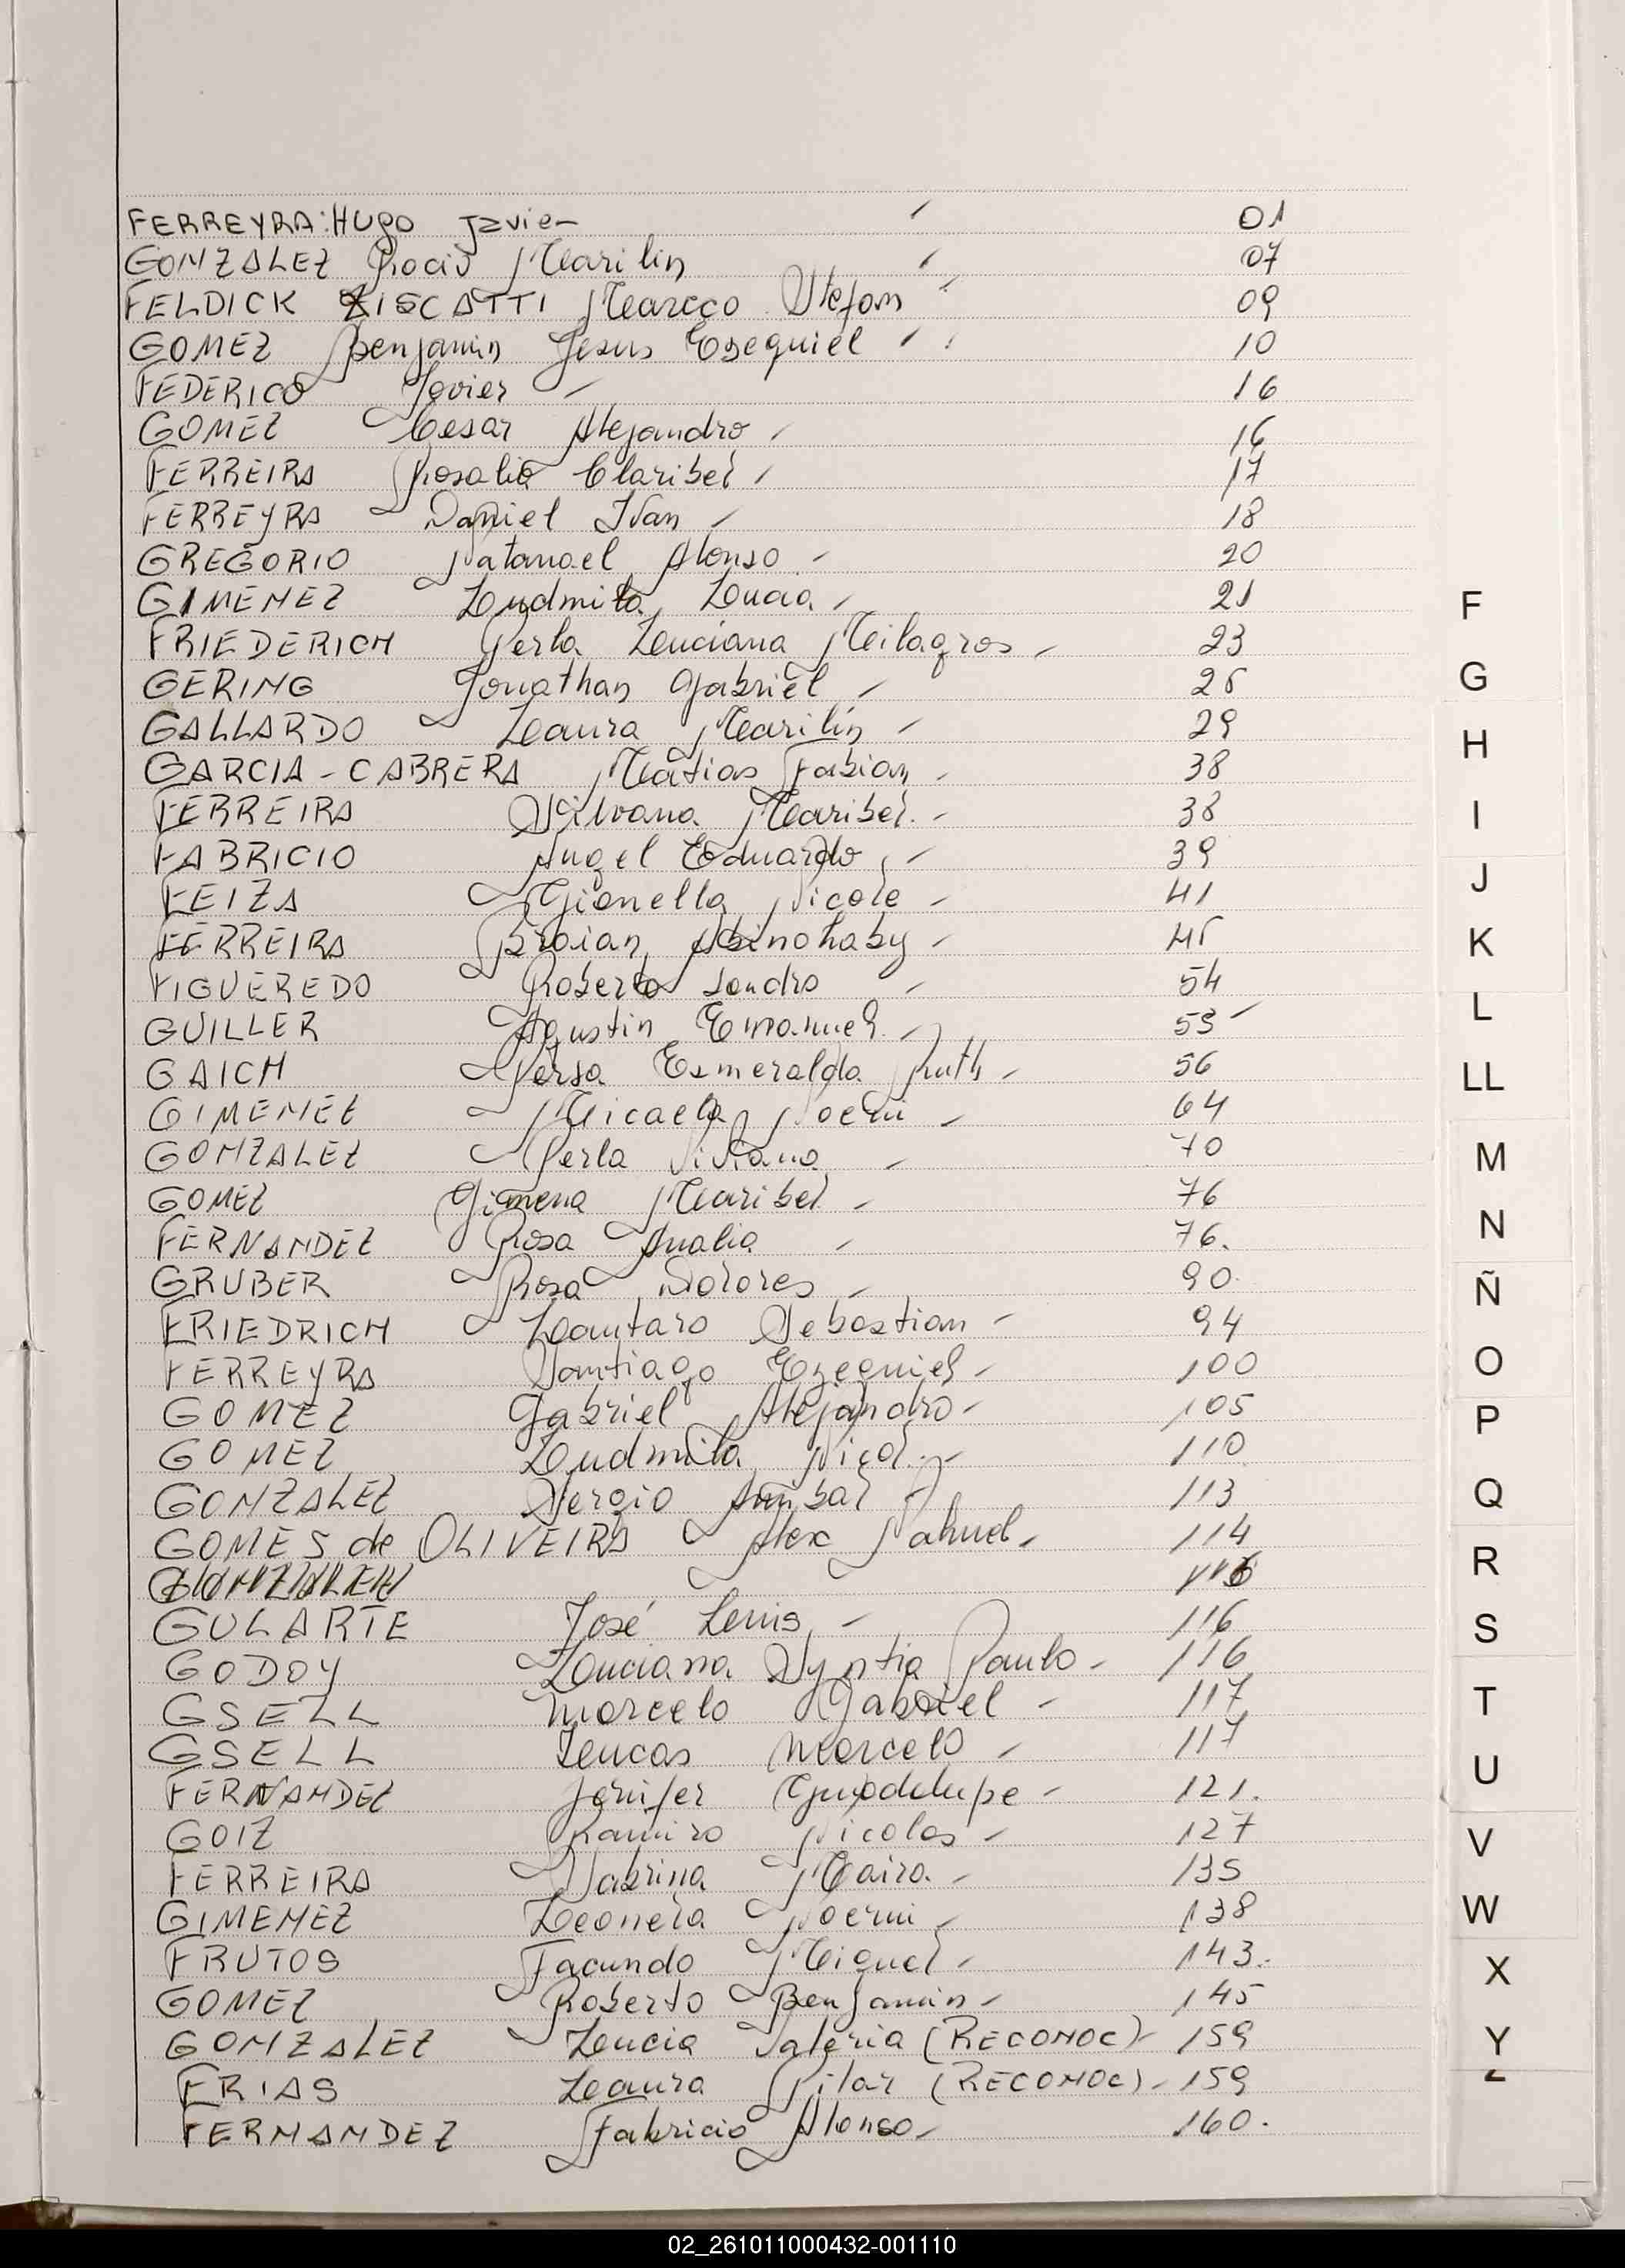 FERREYRA: HUGO Javier 01
GONZALEZ Rocio Marilin 07
FELDICK ZISCATTI Marcço Stefan 09
GOMEZ Benjamin Jesus Ezequiel 10
FEDERICO Javier 16
GOMEZ Cesar Alejandro 16
FERREIRA Rosalia Claribel 17
FERREYRA Daniel Ivan 18
GREGORIO Natanael Alonso 20
GIMENEZ Ludmila Lucia 21
FRIEDERICH Perla Luciana Milagros 23
GERING Jonathan Gabriel 25
GALLARDO Laura Marilin 29
GARCIA - CABRERA Matias Fabian 38
FERREIRA Silvana Maribel 38
FABRICIO Angel Eduardo 39
FEIZA Gionella Nicole 41
FERREIRA Braian 45
FIGUEREDO Roberto Sandro 54
GUILLER Agustin Emanuel 55
GAICH Persa Esmeralda Ruth 56
GIMENEZ Micaela Noemi 64
GONZALEZ Perla Viviana 70
GOMEZ Gimena Maribel 76
FERNANDEZ Rosa Analia 76.
GRUBER Rosa Dolores 90
FRIEDRICH Lautaro Sebastian 94
FERREYRA Santiago Ezequiel 100
GOMEZ Gabriel Alejandro 105
GOMEZ Ludmila Nicol 110
GONZALEZ Sergio Anibal 113
GOMES de OLIVEIRA Alex Nahuel 114
GULARTE José Luis 116
GODOY Luciana Syntia Paulo 116
GSELL Marcelo Gabriel 117
GSELL Lucas Marcelo 117
FERNANDEZ Jenifer Guadalupe 121.
GOIZ Ramiro Nicolas 127
FERREIRA Sabrina Maira 135
GIMENEZ Leonela Noemi 138
FRUTOS Facundo Miguel 143.
GOMEZ Roberto Benjamin 145
GONZALEZ Lucia Valeria (RECONOC) 159
FRIAS Laura Pilar (RECONOC) 159
FERNANDEZ Fabricio Alonso 160.
F
G
H
I
J
K
L
LL
M
N
Ñ
O
P
Q
R
S
T
U
V
W
X
Y
02_261011000432-001110